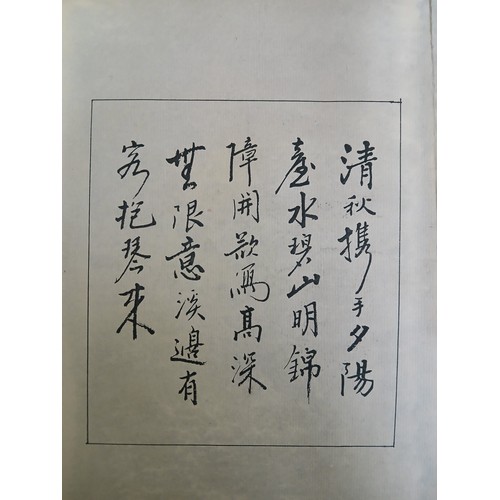 清秋携手夕陽
臺水碧山明錦
障開欲寫高深
無限意溪邊有
客抱琴来